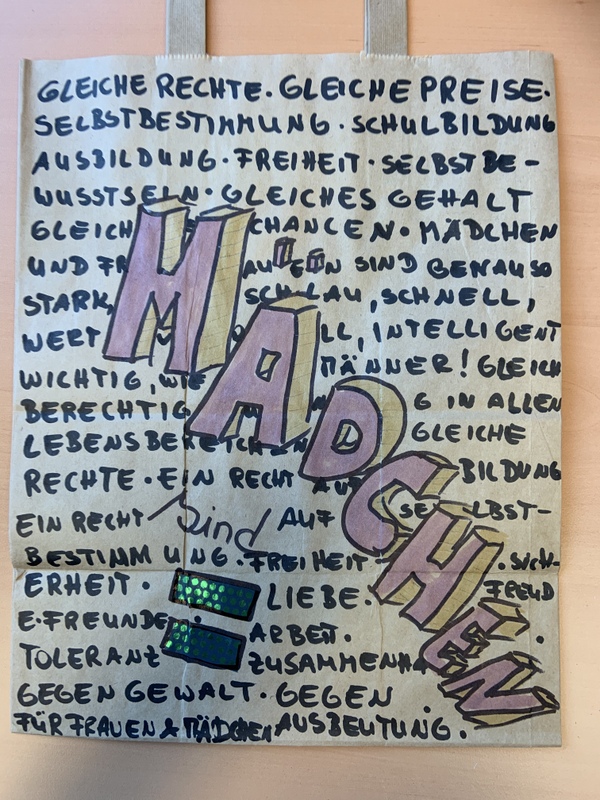 GLEICHE RECHTE. GLEICHE PREISE.
SELBSTBESTIMMUNG · SCHULBILDUNG
AUSBILDUNG · FREIHEIT · SELBSTBE-
WUSSTSEIN · GLEICHES GEHALT
GLEICH CHANCEN · MÄDCHEN
UND FRAUEN SIND GENAUSO
STARK, SCHLAU, SCHNELL,
WERT LL, INTELLIGENT
WICHTIG, WIE MÄNNER! GLEICH
BERECHTIG G IN ALLEN
LEBENSBEREICHEN GLEICHE
RECHTE · EIN RECHT AUF BILDUNG
EIN RECHT AUF SELBST-
BESTIMMUNG · FREIHEIT · SICH-
ERHEIT · LIEBE. FREUD
E · FREUNDE ARBEIT.
TOLERANZ ZUSAMMENHA
GEGEN GEWALT · GEGEN
FÜR FRAUEN & MÄDCHEN AUSBEUTUNG.
MÄDCHEN
sind